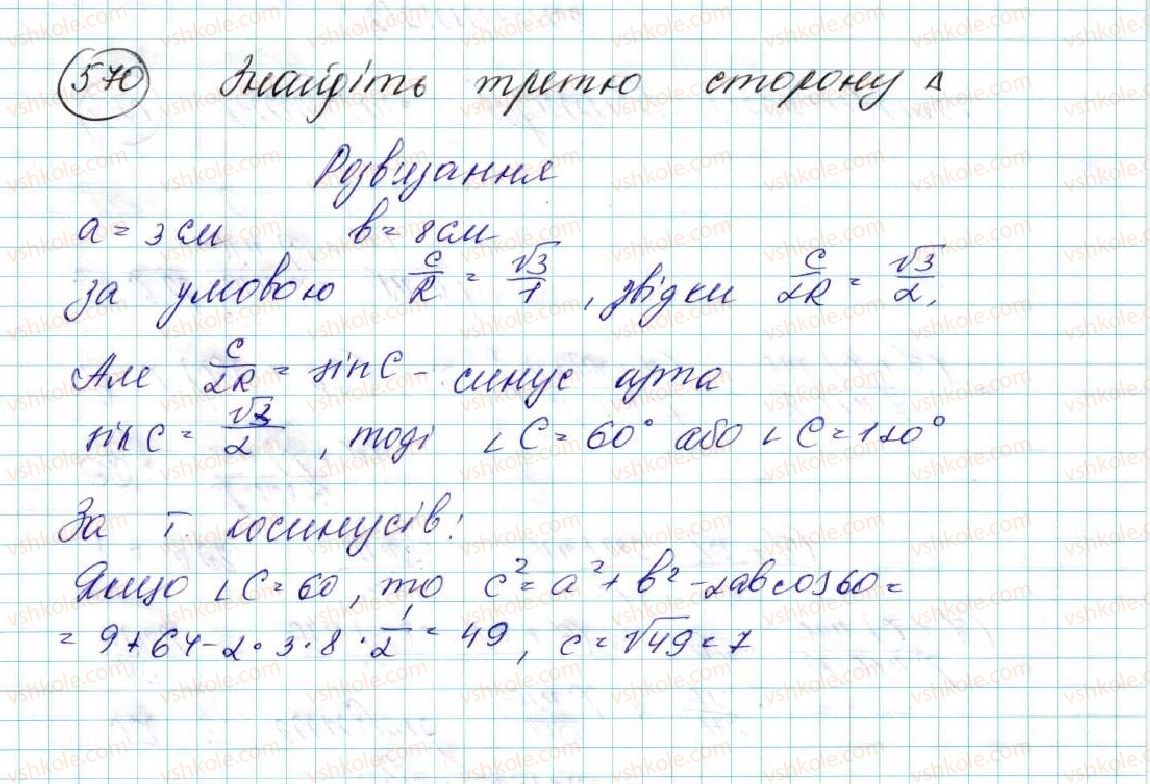 570 Знайдіть третю сторону Δ
Розв'язання
a = 3 см b = 8 см
за умовою c/R = √3/1, звідки c/2R = √3/2.
Але c/2R = sin C - синус арта
sin C = √3/2, тоді ∠C = 60° або ∠C = 120°
За т. косинусів:
Якщо ∠C = 60, то c² = a² + b² - 2ab cos 60 =
= 9 + 64 - 2·3·8·1/2 = 49, c = √49 = 7